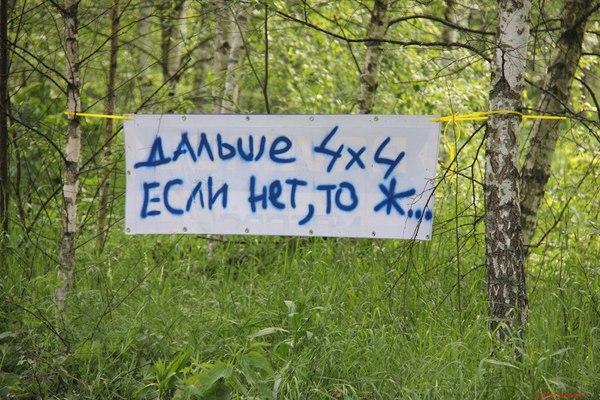 Дальше 4x4
Если нет, то Ж...